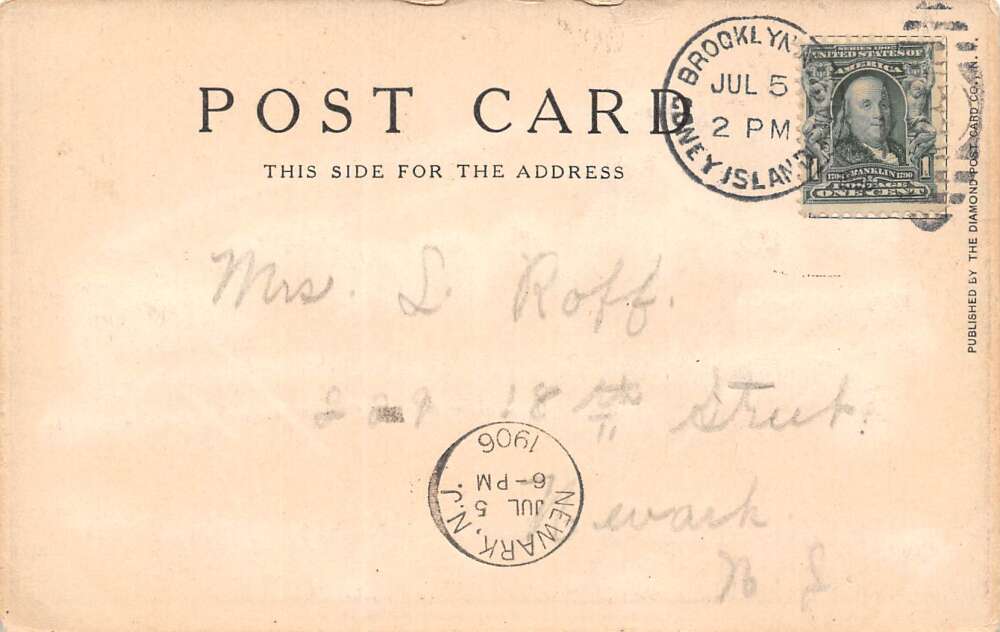 BROOKLYN
JUL 5
2 PM
CONEY ISLAND
SERIES 1902
UNITED STATES OF
AMERICA
1706 FRANKLIN 1790
1 1
POSTAGE
ONE CENT
POST CARD
THIS SIDE FOR THE ADDRESS
PUBLISHED BY THE DIAMOND POST CARD CO., N.Y.
Mrs. L. Roff.
229 18th Street.
Newark
N J
NEWARK, N.J.
JUL 5
6-PM
1906